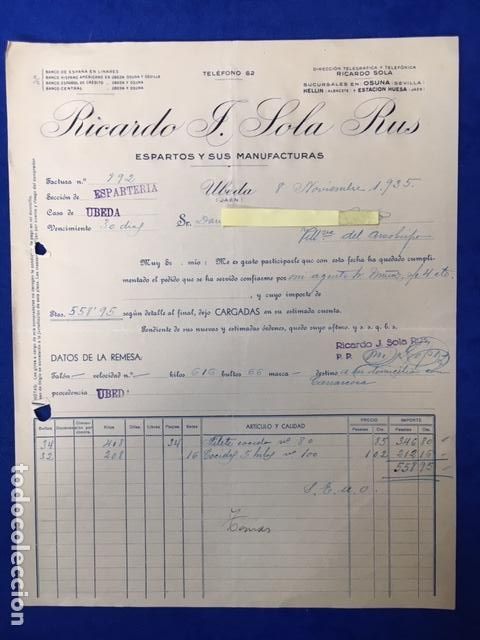 BANCO DE ESPAÑA EN LINARES
BANCO HISPANO AMERICANO EN UBEDA OSUNA Y SEVILLA
BANCO ESPAÑOL DE CRÉDITO - UBEDA Y OSUNA
BANCO CENTRAL - UBEDA Y OSUNA
TELÉFONO 62
DIRECCIÓN TELEGRÁFICA Y TELEFÓNICA
RICARDO SOLA
SUCURSALES EN: OSUNA (SEVILLA)
HELLIN (ALBACETE) Y ESTACION HUESA (JAEN)
Ricardo J. Sola Rus
ESPARTOS Y SUS MANUFACTURAS
Factura n.º 792
Sección de ESPARTERIA
Casa de UBEDA
Vencimiento 30 días
Ubeda 8 Noviembre 1.935.
(JAEN)
Sr. Dan
del Arzobispo
MUY SR. MÍO: Me es grato participarle que con esta fecha ha quedado cumplimentado
el pedido que se ha servido confiarme por mi agente
, y cuyo importe de
Ptas. 558'95 según detalle al final, dejo CARGADAS en su estimada cuenta.
Pendiente de sus nuevas y estimadas órdenes, quedo suyo aftmo. y s. s. q. b. s.
Ricardo J. Sola Rus
P. P.
DATOS DE LA REMESA:
Talón velocidad n.º kilos 616 bultos 66 marca destino a su domicilio
procedencia UBED
Bultos Docenas Kilos Libras Piezas Rollos ARTÍCULO Y CALIDAD PRECIO IMPORTE
Pesetas Cts. Pesetas Cts.
34 408 34 Filete cocido nº 80 85 346 80
32 208 16 Cocidos 5 hilos nº 100 102 212 16
558 95
S. E. u O.
todocoleccion